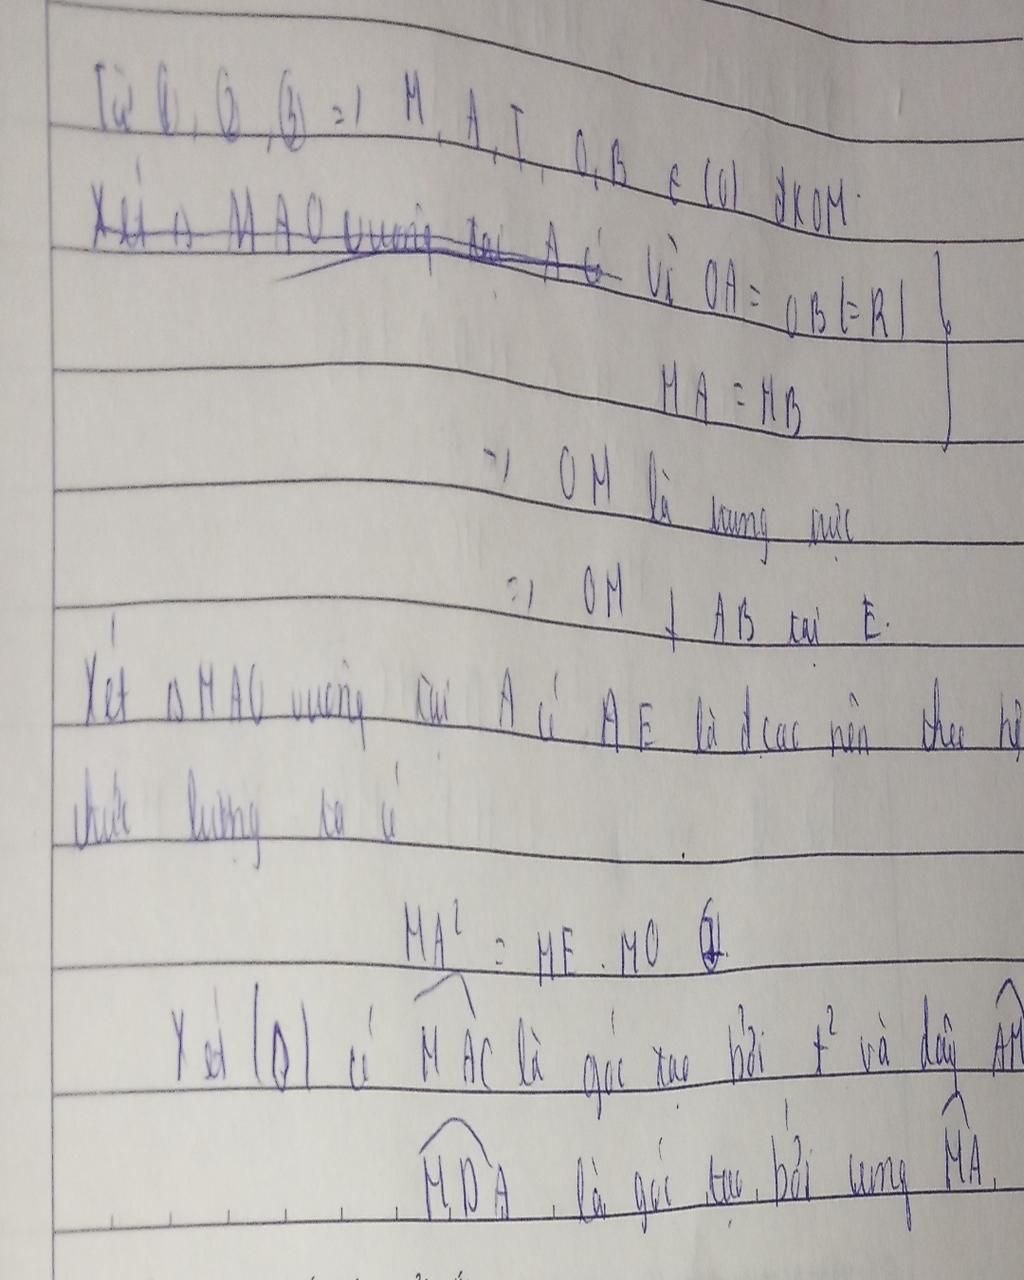 Từ ①, ②, ③ => M, A, I, O, B ∈ (O) đk OM.
Xét Δ MAO vuông tại A có Vì OA = OB (= R)
MA = MB
=> OM là trung trực
=> OM ⊥ AB tại E.
Xét Δ MAO vuông tại A có AE là đcao nên theo hệ
thức lượng ta có
MA² = ME . MO ①.
Xét (O) có MAC là góc tạo bởi t² và dây AM
MDA là góc tạo bởi cung MA.